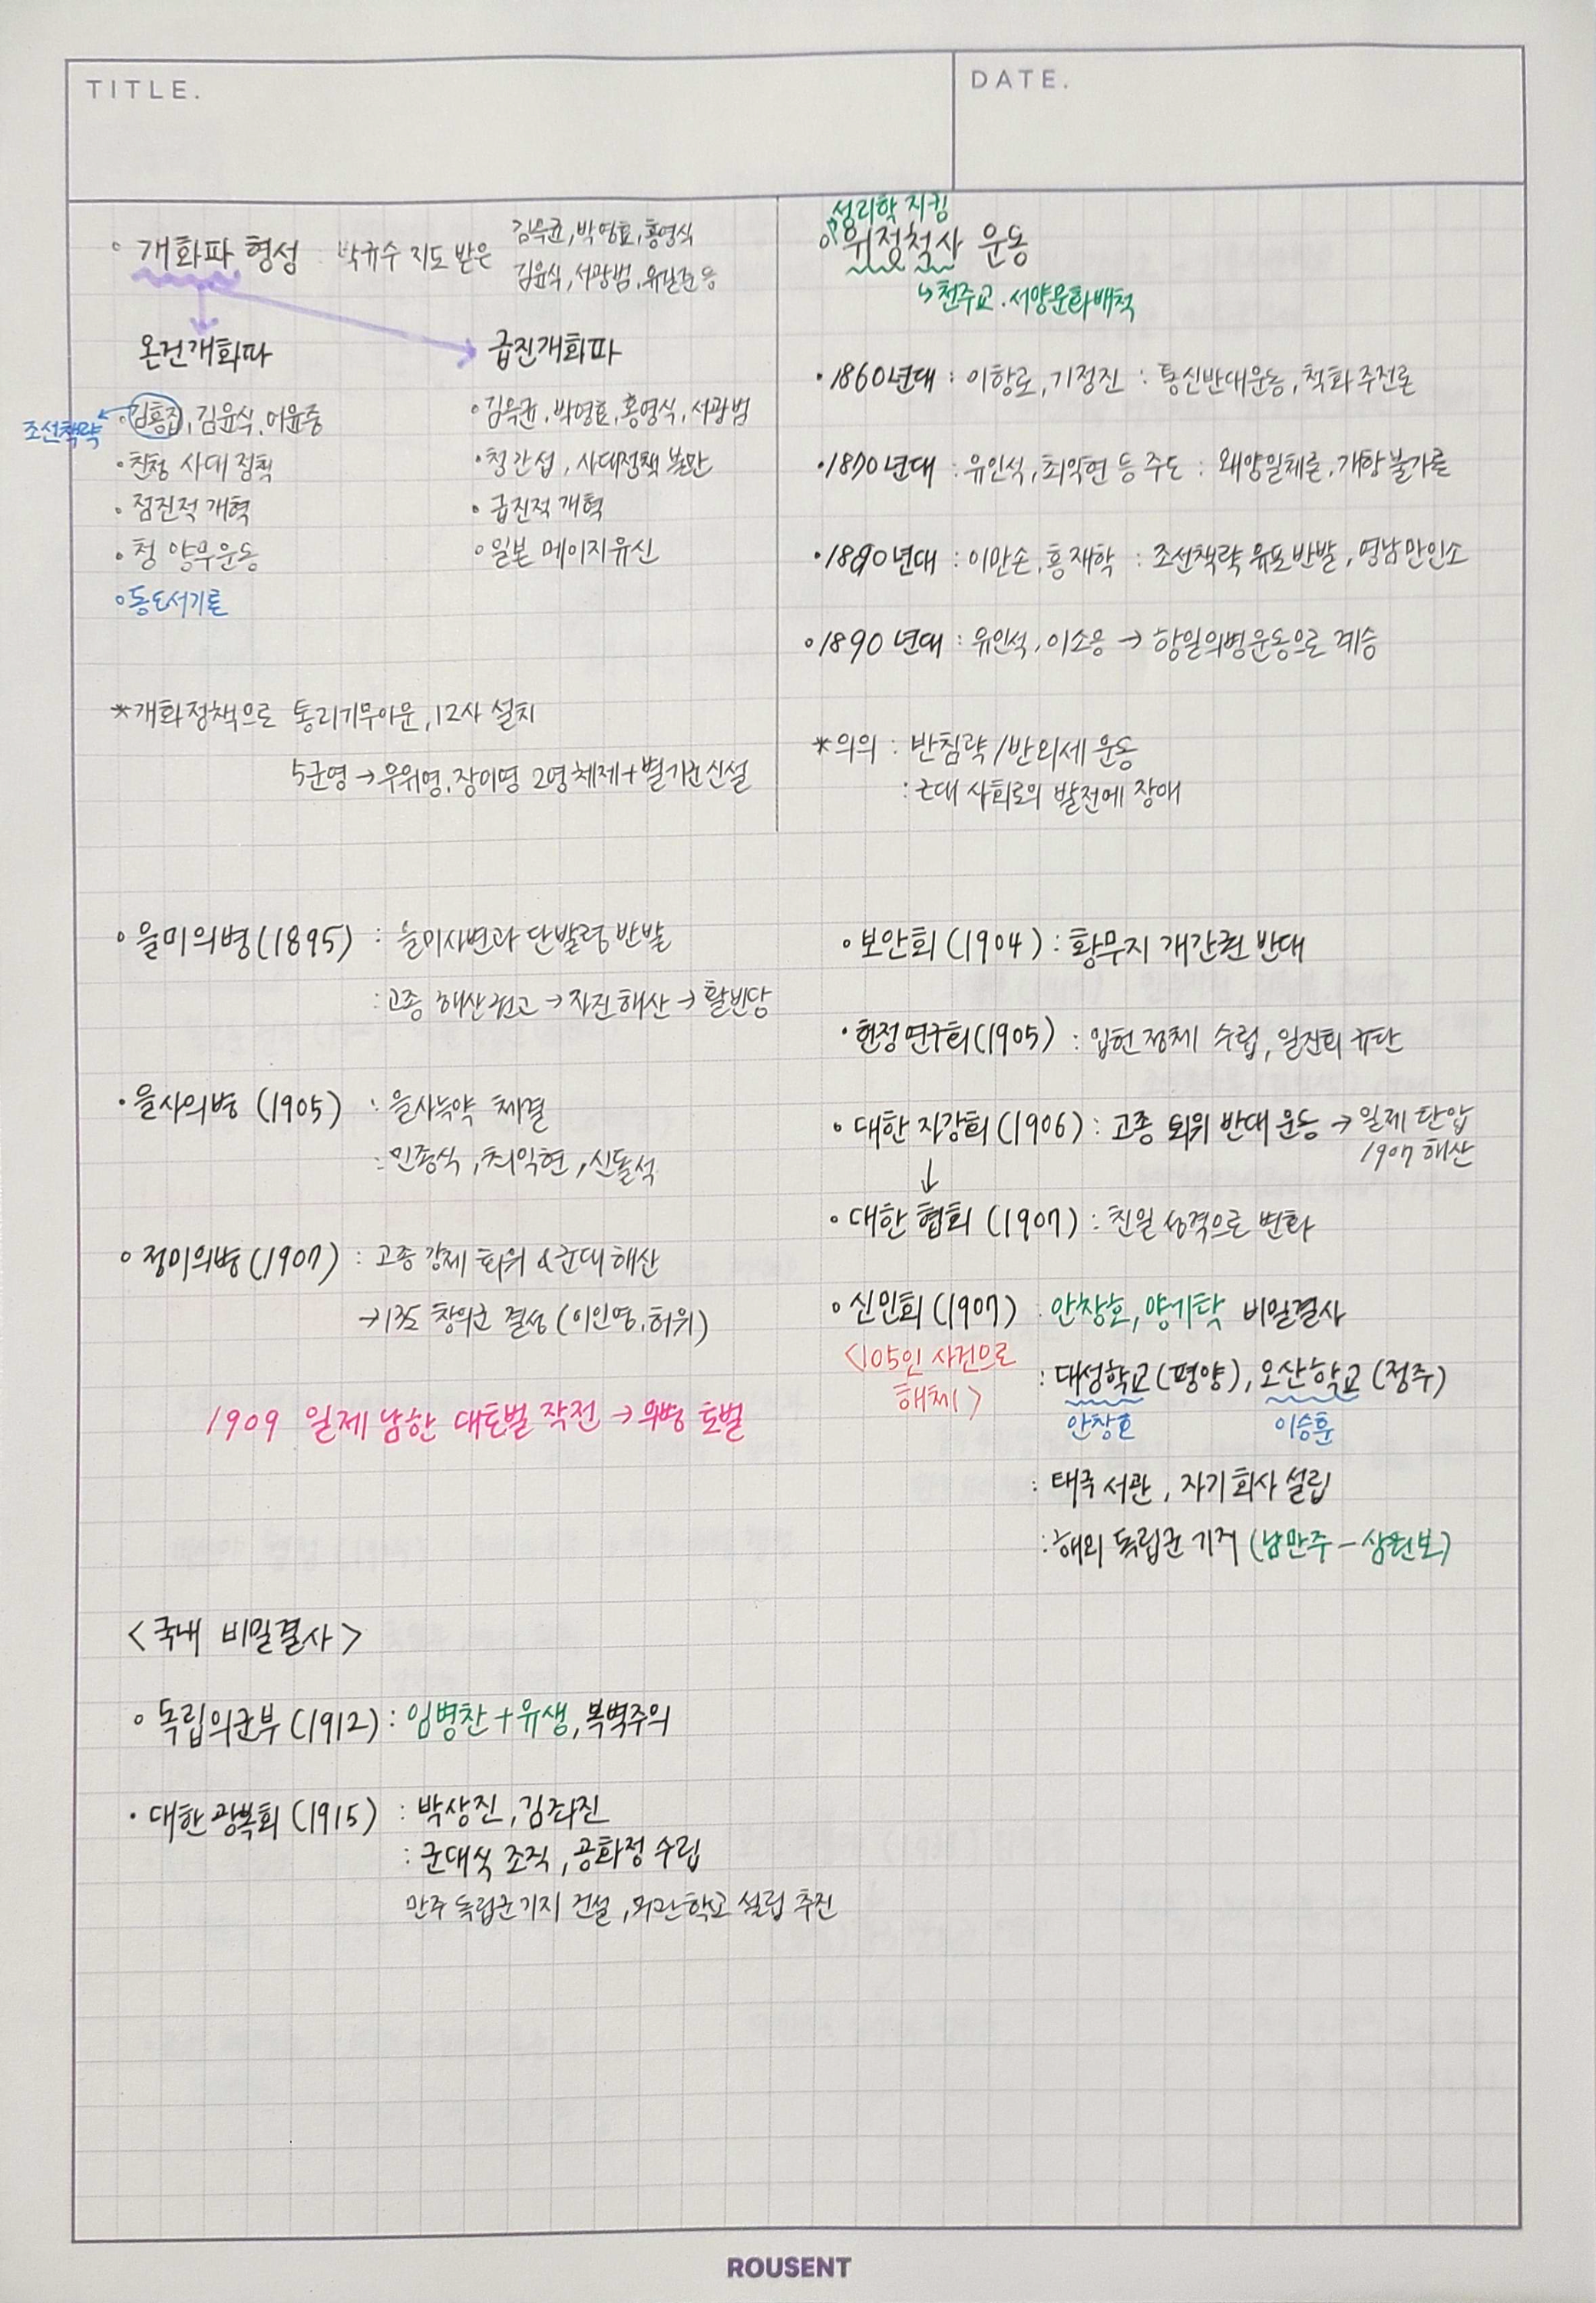 TITLE.
DATE.
◦ 개화파 형성 박규수 지도 받은
김옥균, 박영효, 홍영식
김윤식, 서광범, 유길준 등
온건개화파
급진개화파
조선책략
◦ 김홍집, 김윤식, 어윤중
• 친청 사대 정책
• 점진적 개혁
◦ 청 양무운동
◦ 동도서기론
◦ 김옥균, 박영효, 홍영식, 서광범
• 청 간섭, 사대정책 불만
• 급진적 개혁
◦ 일본 메이지유신
*개화정책으로 통리기무아문, 12사 설치
5군영 → 무위영, 장어영 2영 체제 + 별기군 신설
성리학 지킴
◦ 위정척사 운동
↳ 천주교. 서양문화배척
• 1860년대 : 이항로, 기정진 : 통신반대운동, 척화주전론
• 1870년대 : 유인석, 최익현 등 주도 : 왜양일체론, 개항불가론
• 1880년대 : 이만손, 홍재학 : 조선책략 유포 반발, 영남만인소
◦ 1890년대 : 유인석, 이소응 → 항일의병운동으로 계승
*의의 : 반침략/반외세 운동
: 근대 사회로의 발전에 장애
◦ 을미의병(1895) : 을미사변과 단발령 반발
: 고종 해산 권고 → 자진 해산 → 활빈당
• 을사의병 (1905) : 을사늑약 체결
: 민종식, 최익현, 신돌석
◦ 정미의병(1907) : 고종 강제 퇴위 & 군대 해산
→ 13도 창의군 결성 (이인영, 허위)
1909 일제 남한 대토벌 작전 → 의병 토벌
◦ 보안회 (1904) : 황무지 개간권 반대
• 헌정연구회(1905) : 입헌 정체 수립, 일진회 규탄
• 대한 자강회(1906) : 고종 퇴위 반대 운동 → 일제 탄압
1907 해산
↓
◦ 대한 협회 (1907) : 친일 성격으로 변화
◦ 신민회(1907) : 안창호, 양기탁 비밀결사
<105인 사건으로
해체>
: 대성학교(평양), 오산학교(정주)
안창호
이승훈
: 태극 서관, 자기회사 설립
: 해외 독립군 기지 (남만주 - 삼원보)
<국내 비밀결사>
◦ 독립의군부(1912) : 임병찬 + 유생, 복벽주의
• 대한 광복회 (1915) : 박상진, 김좌진
: 군대식 조직, 공화정 수립
만주 독립군기지 건설, 무관학교 설립 추진
ROUSENT